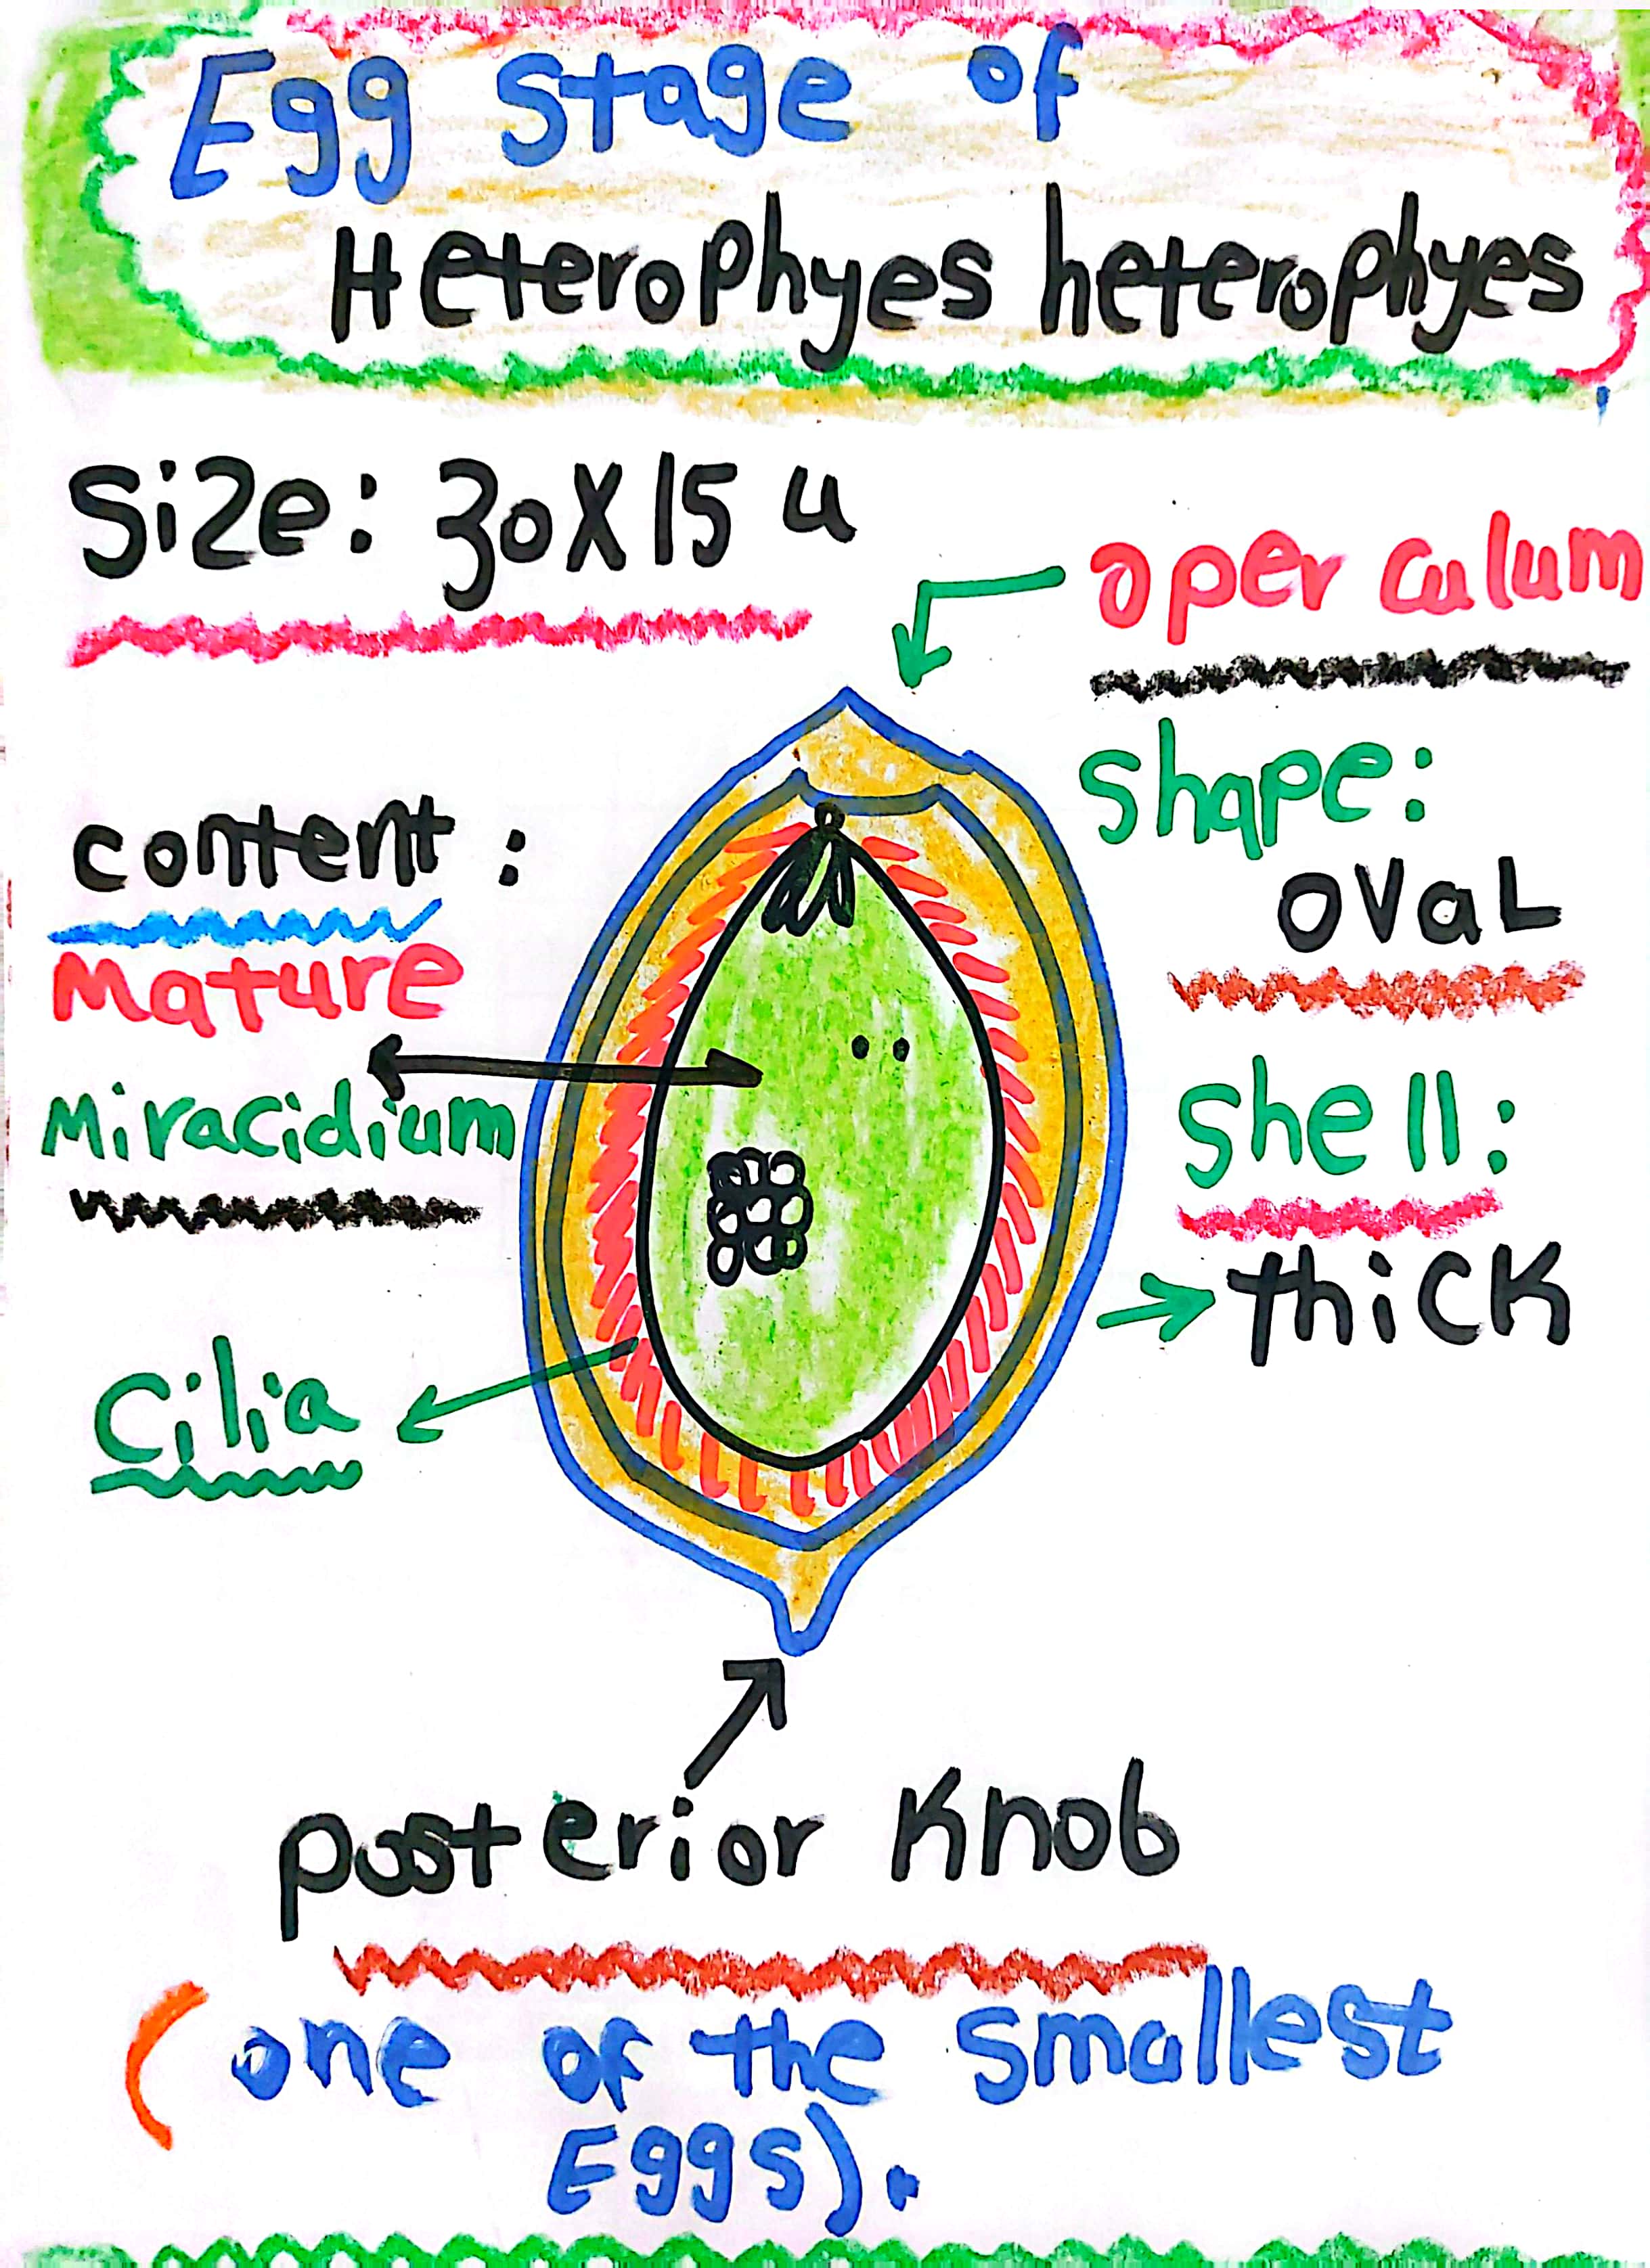 Egg stage of
Heterophyes heterophyes
Size: 30X15 u
operculum
shape:
oval
content :
Mature
Miracidium
shell:
thick
Cilia
posterior Knob
(one of the smallest
Eggs).